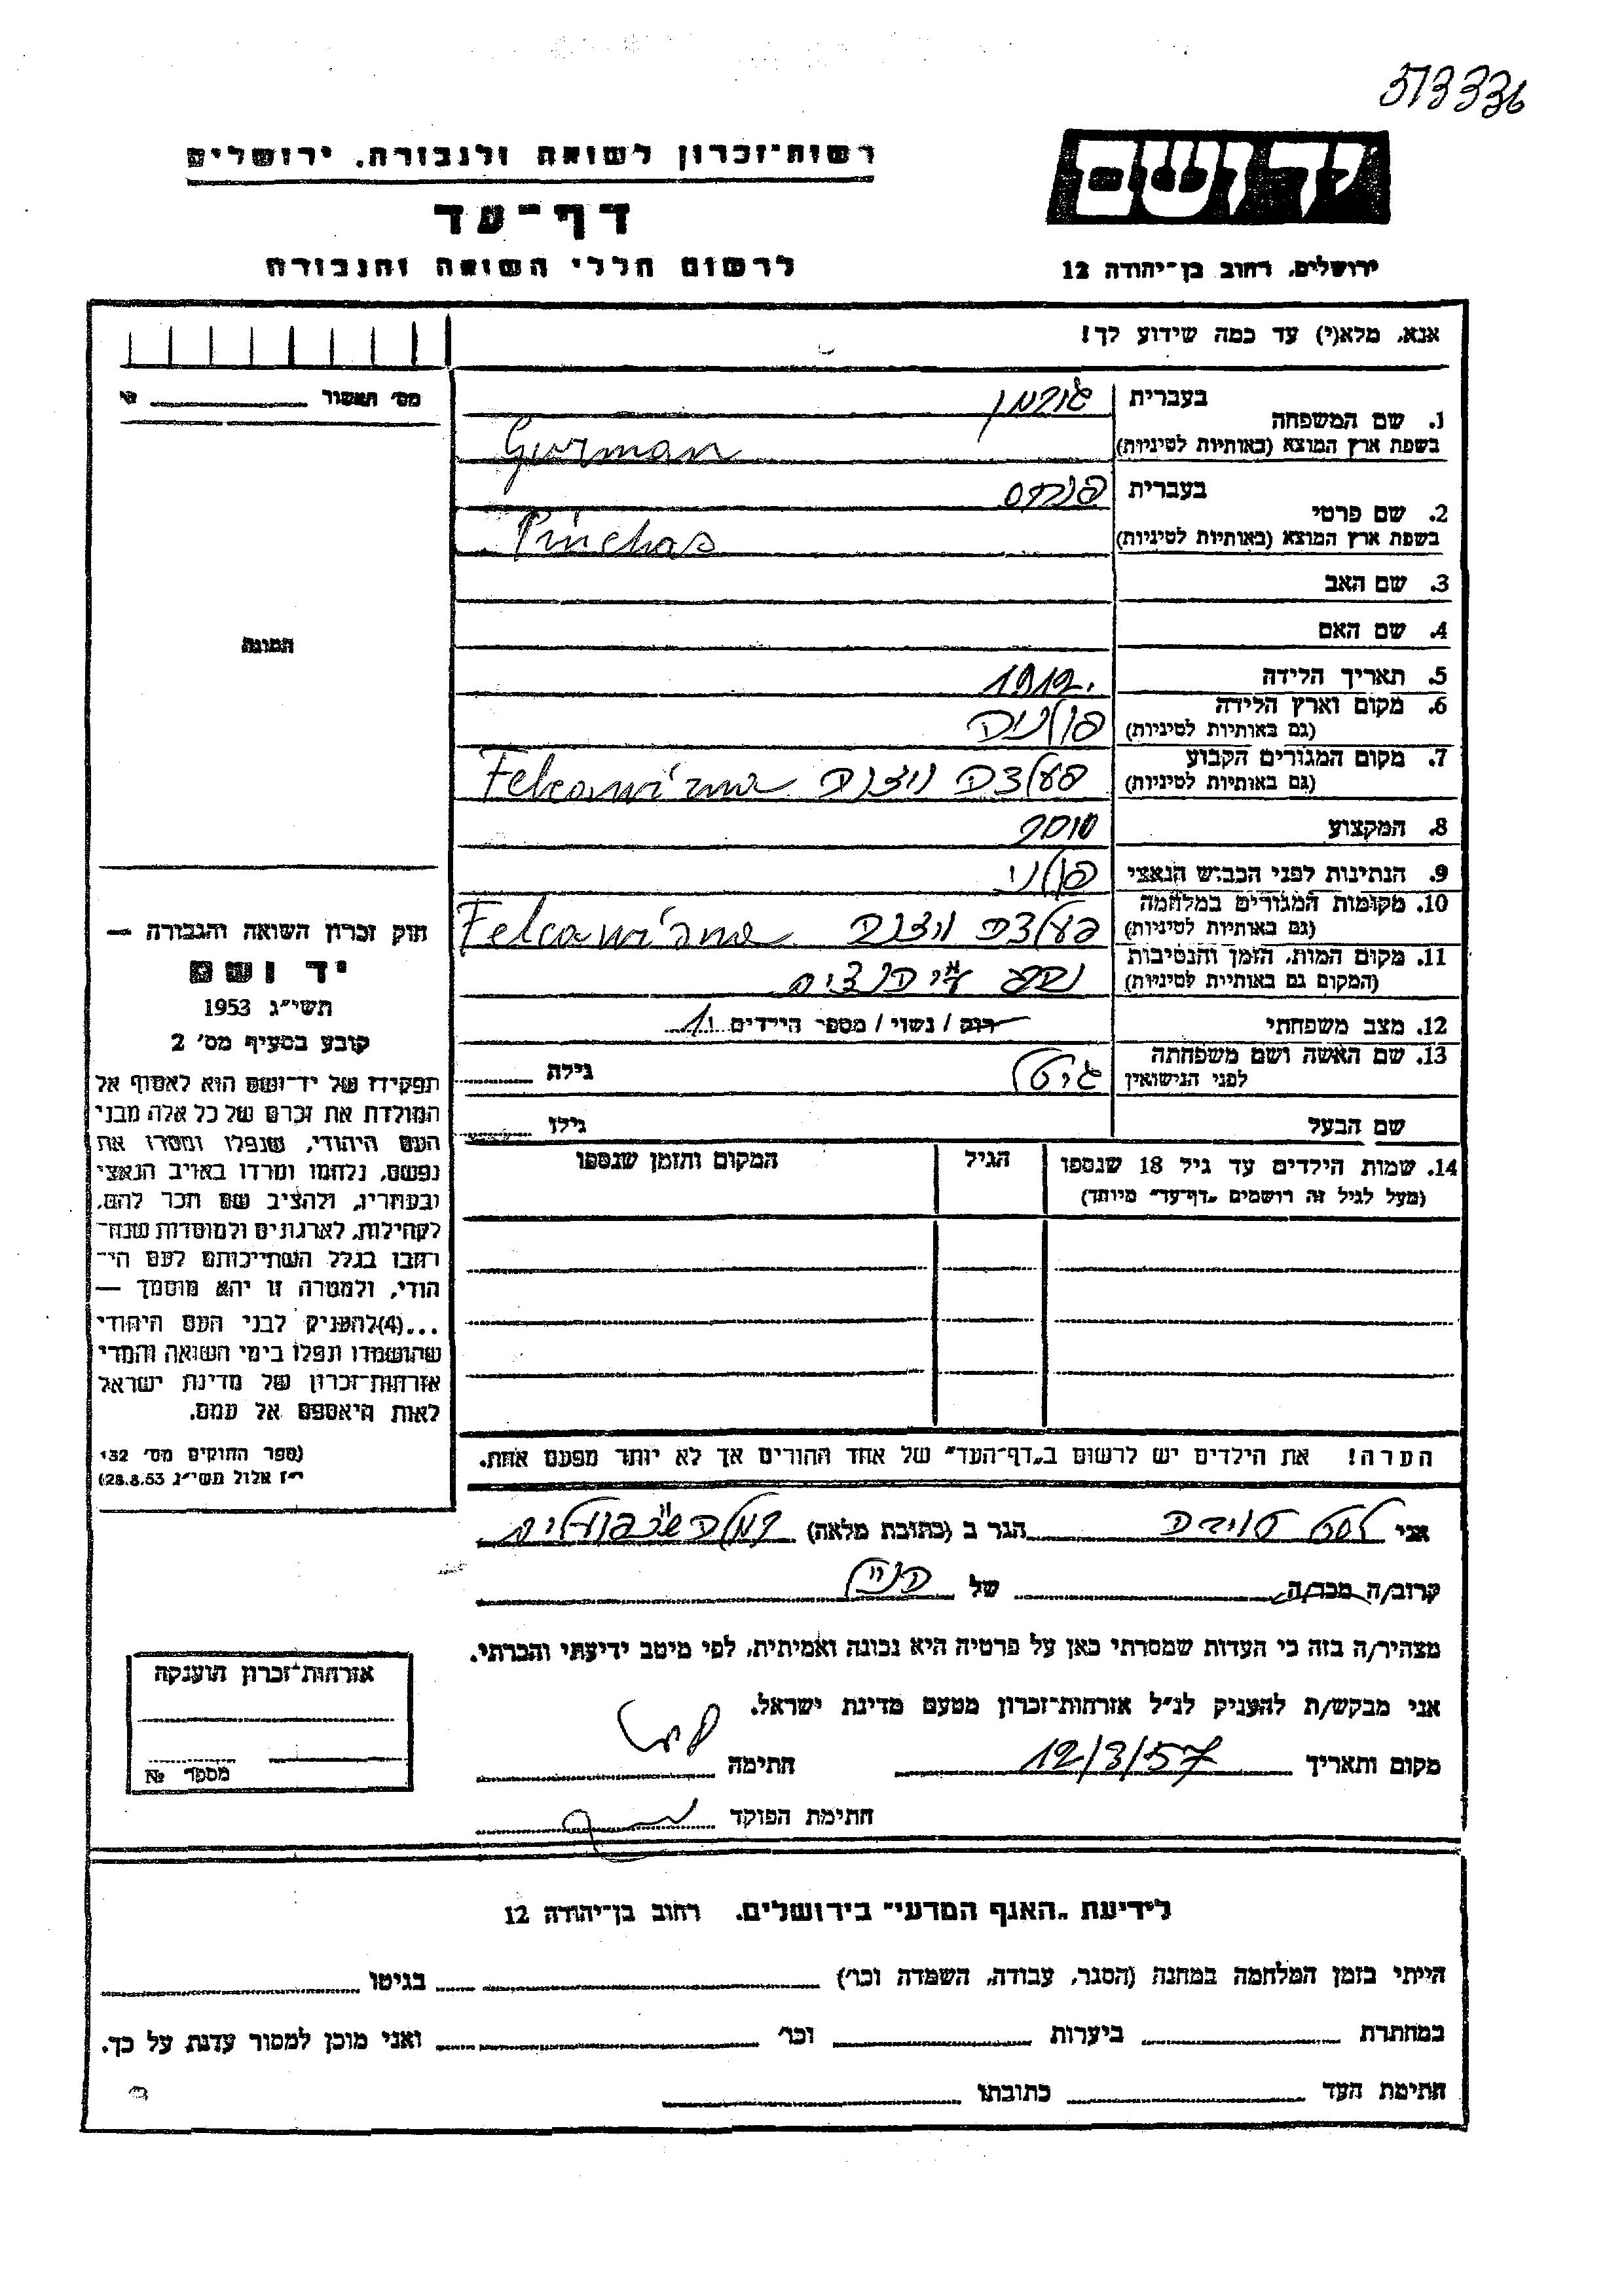 513336
רשות-זכרון לשואה ולגבורה, ירושלים
יד ושם
דף-עד
לרשום חללי השואה והגבורה
ירושלים, רחוב בן-יהודה 12
אנא, מלא(י) עד כמה שידוע לך!
מס' האשור
1. שם המשפחה
בעברית
גורמן
בשפת ארץ המוצא (באותיות לטיניות)
Gurman
2. שם פרטי
בעברית
פנחס
בשפת ארץ המוצא (באותיות לטיניות)
Pinchas
3. שם האב
4. שם האם
התמונה
5. תאריך הלידה
1912.
6. מקום וארץ הלידה
(גם באותיות לטיניות)
פולניה
7. מקום המגורים הקבוע
(גם באותיות לטיניות)
8. המקצוע
סוחר
9. הנתינות לפני הכבוש הנאצי
פולני
10. מקומות המגורים במלחמה
(גם באותיות לטיניות)
11. מקום המות, הזמן והנסיבות
(המקום גם באותיות לטיניות)
נספה ע"י הנאצים
12. מצב משפחתי
רווק / נשוי / מספר הילדים 1
13. שם האשה ושם משפחתה
לפני הנישואין
גיטל
גילה
שם הבעל
גילו
14. שמות הילדים עד גיל 18 שנספו
(מעל לגיל זה רושמים „דף-עד" מיוחד)
הגיל
המקום והזמן שנספו
הערה! את הילדים יש לרשום ב„דף-העד" של אחד ההורים אך לא יותר מפעם אחת.
חוק זכרון השואה והגבורה —
יד ושם
תשי"ג 1953
קובע בסעיף מס' 2
תפקידו של יד-ושם הוא לאסוף אל
המולדת את זכרם של כל אלה מבני
העם היהודי, שנפלו ומסרו את
נפשם, נלחמו ומרדו באויב הנאצי
ובעוזריו, ולהציב שם וזכר להם,
לקהילות, לארגונים ולמוסדות שנח-
רבו בגלל השתייכותם לעם הי-
הודי, ולמטרה זו יהא מוסמך —
...(4)להעניק לבני העם היהודי
שהושמדו ונפלו בימי השואה והמרי
אזרחות-זכרון של מדינת ישראל
לאות היאספם אל עמם.
(ספר החוקים מס' 132
י"ז אלול תשי"ג 28.8.53)
אני
הגר ב (כתובת מלאה)
קרוב/ה מכר/ה
של הנ"ל
מצהיר/ה בזה כי העדות שמסרתי כאן על פרטיה היא נכונה ואמיתית, לפי מיטב ידיעתי והכרתי.
אני מבקש/ת להעניק לנ"ל אזרחות-זכרון מטעם מדינת ישראל.
מקום ותאריך 12/3/57
חתימה
חתימת הפוקד
אזרחות-זכרון הוענקה
מספר №
לידיעת „האגף המדעי" בירושלים, רחוב בן-יהודה 12
הייתי בזמן המלחמה במחנה (הסגר, עבודה, השמדה וכו')
בגיטו
במחתרת
ביערות
וכו'
ואני מוכן למסור עדות על כך.
חתימת העד
כתובתו